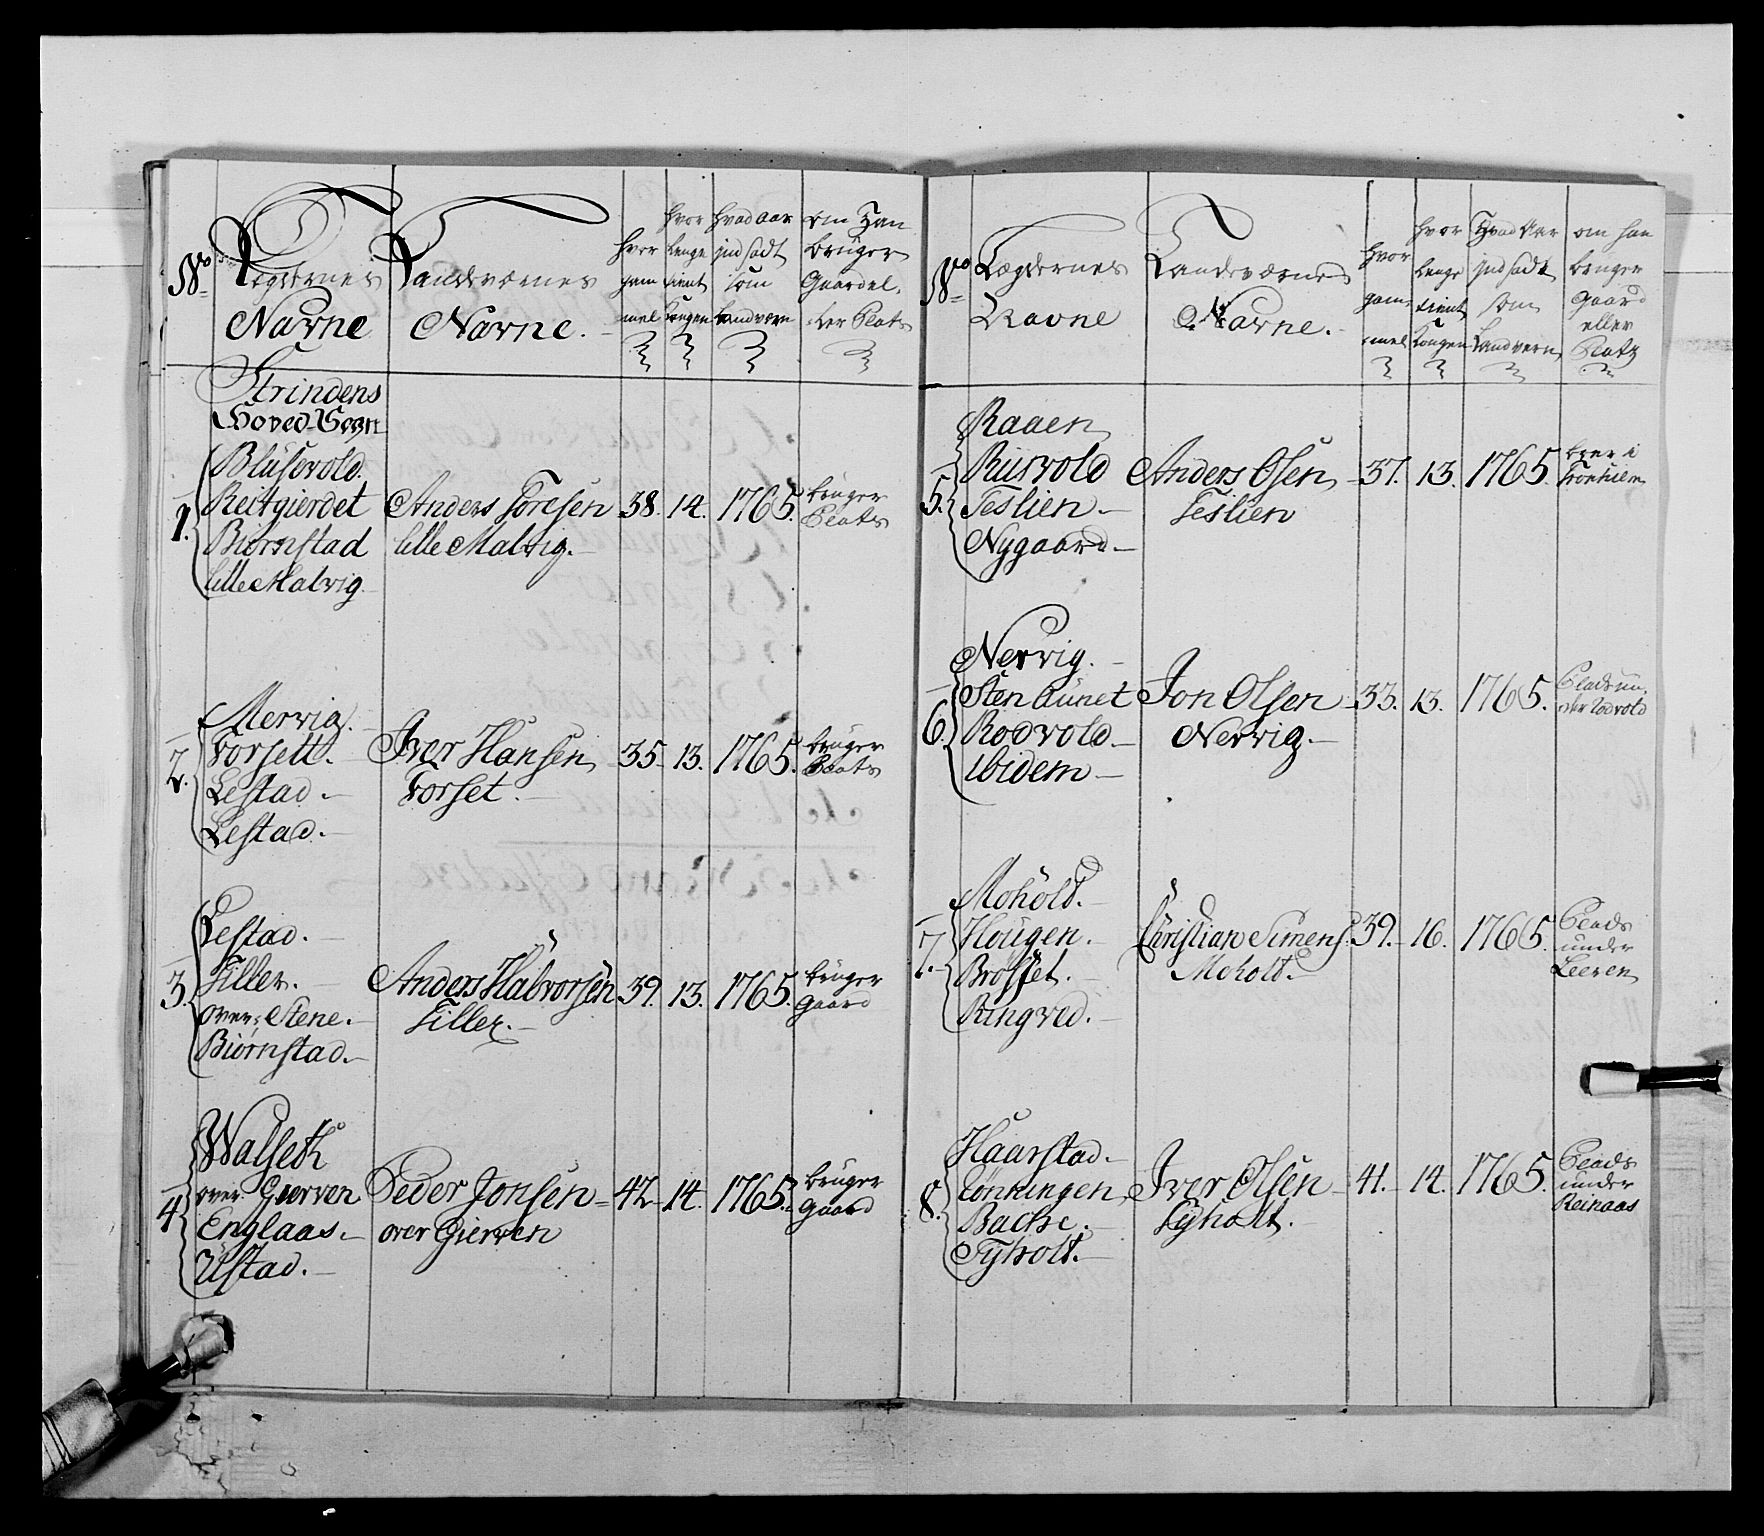 No
Lægdernes
Navne
Landværnes
Navne.
hvor
gam
mel
hvor
lenge
tient
Kongen
hvad aar
indsadt
som
Landværn
om Han
bruger
Gaard el,
ler Plats
Strindens
Hoved-Sogn
1.
Blusevold.
Reitgierdet
Biørnstad
lille Malvig
Anders Toresen
lille Malvig.
38.
14.
1765.
bruger
Plats
2.
Mervig.
Forsett.
Lestad.
Lestad.
Iver Hansen
Forset.
35
13.
1765.
bruger
Plats
3.
Lestad.
Tiller.
over Stene.
Biørnstad.
Anders Halvorsen
Tiller.
39.
13.
1765.
bruger
gaard
4.
Walseth
over Gierven
Englaas.
Ustad.
Peder Jonsen
over Gierven
42
14.
1765.
bruger
gaard
No
Lægdernes
Navne
Landeværnes
Navne.
hvor
gam,
mel
hvor
lenge
tient
Kongen
Hvad Aar
indsadt
som
Landvern
om han
bruger
gaard
eller
Platz
5.
Raaen
Rusvold
Teslien.
Nygaard.
Anders Olsen
Teslien
37.
13.
1765.
boer i
Tronhiem
6.
Nervig.
Sten Aunet
Rodvold
ibidem
Jon Olsen
Nervig.
33.
13.
1765.
Plads un,
der Rodvold
7.
Moholt.
Hougen.
Brøsset.
Ringved.
Christian Simens.
Moholt.
39.
16.
1765.
Plads
under
Leeren
8.
Haarstad.
Bache.
Tyholt.
Iver Olsen
Tyholt.
41.
14.
1765.
Plads
under
Reinaas